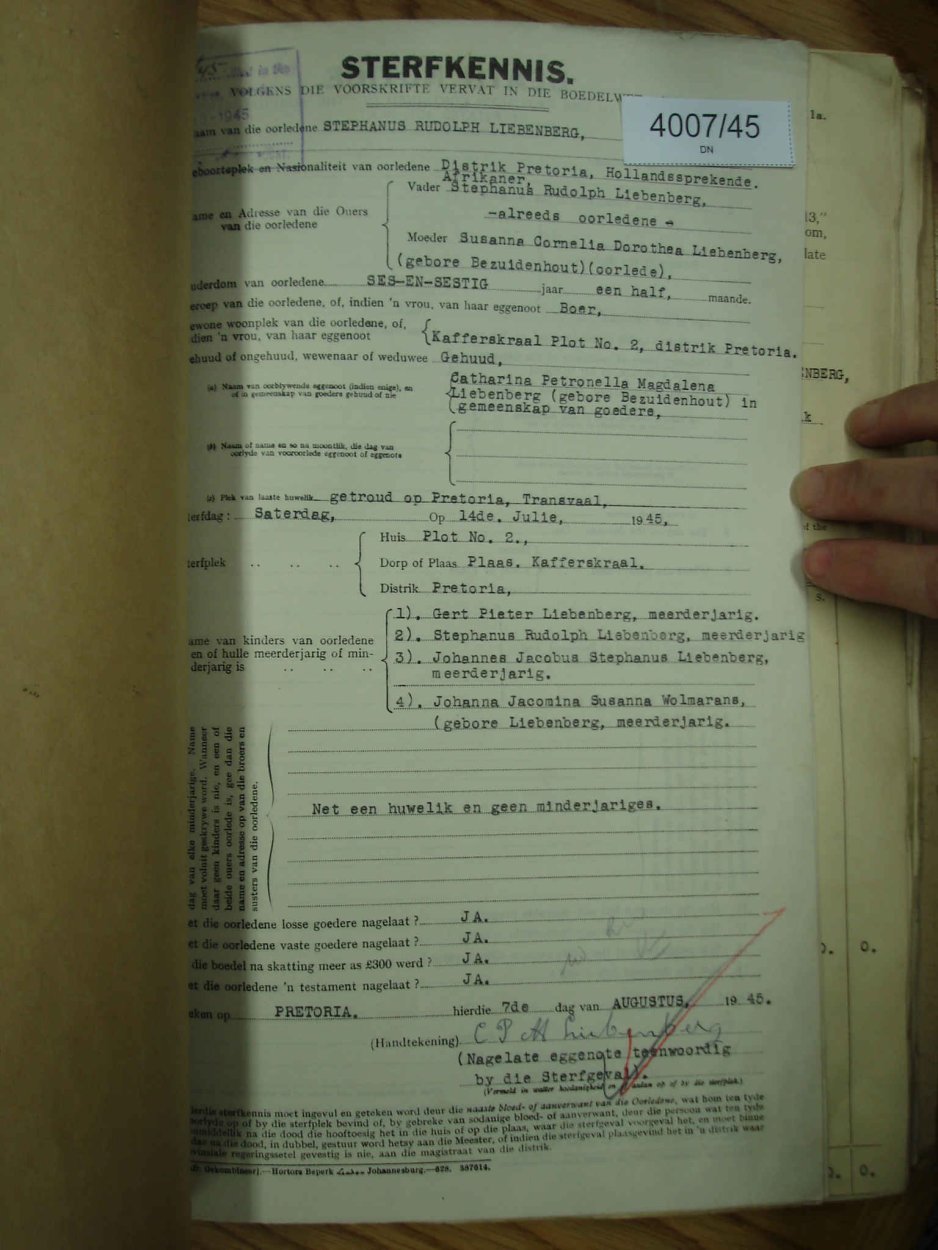 STERFKENNIS.
VOLGENS DIE VOORSKRIFTE VERVAT IN DIE
4007/45
DN
aam van die oorledene STEPHANUS RUDOLPH LIEBENBERG,
eboorteplek en Nasionaliteit van oorledene Distrik Pretoria, Hollandssprekende.
Afrikaner,
Vader Stephanus Rudolph Liebenberg,
ame en Adresse van die Ouers
van die oorledene
-alreeds oorledene -
Moeder Susanna Cornelia Dorothea Liebenberg,
(gebore Bezuidenhout)(oorlede),
uderdom van oorledene SES-EN-SESTIG jaar een half, maande.
eroep van die oorledene, of, indien 'n vrou, van haar eggenoot Boer,
ewone woonplek van die oorledene, of,
dien 'n vrou, van haar eggenoot Kafferskraal Plot No. 2, distrik Pretoria.
ehuud of ongehuud, wewenaar of weduwee Gehuud,
(a) Naam van oorblywende eggenoot (indien enige), en
of in gemeenskap van goedere gehuud of nie
Catharina Petronella Magdalena
Liebenberg (gebore Bezuidenhout) in
gemeenskap van goedere,
(b) Naam of name en so na moontlik, die dag van
oorlyde van vooroorlede eggenoot of eggenote
(c) Plek van laaste huwelik getroud op Pretoria, Transvaal,
terfdag: Saterdag, Op 14de. Julie, 1945,
Huis Plot No. 2.,
terfplek .. .. .. Dorp of Plaas Plaas. Kafferskraal.
Distrik Pretoria,
ame van kinders van oorledene
en of hulle meerderjarig of min-
derjarig is .. .. ..
1). Gert Pieter Liebenberg, meerderjarig.
2). Stephanus Rudolph Liebenberg, meerderjarig
3). Johannes Jacobus Stephanus Liebenberg,
meerderjarig.
4). Johanna Jacomina Susanna Wolmarans,
(gebore Liebenberg, meerderjarig.
dag van elke minderjarige. Name
moet voluit geskrywe word. Wanneer
daar geen kinders is nie, en een of
beide ouers oorlede is, gee dan die
name en adresse op van die broers en
susters van die oorledene.
Net een huwelik en geen minderjariges.
et die oorledene losse goedere nagelaat? JA.
et die oorledene vaste goedere nagelaat? JA.
die boedel na skatting meer as £300 werd? JA.
et die oorledene 'n testament nagelaat? JA.
eken op PRETORIA. hierdie 7de dag van AUGUSTUS, 1945.
(Handtekening) C P M Liebenberg
(Nagelate eggenote teenwoordig
by die Sterfgeval).
(Vermeld in watter hoedanigheid en of aanwesig op of by die sterfplek.)
ierdie sterfkennis moet ingevul en geteken word deur die naaste bloed- of aanverwant van die Oorledene, wat hom ten tyde
oorlyde op of by die sterfplek bevind of, by gebreke van sodanige bloed- of aanverwant, deur die persoon wat ten tyde
onmiddellik na die dood die hooftoesig het in die huis of op die plaas, waar die sterfgeval voorgeval het, en moet binne
dae na die dood, in dubbel, gestuur word hetsy aan die Meester, of indien die sterfgeval plaasgevind het in 'n distrik waar
winsiale regeringssetel gevestig is nie, aan die magistraat van die distrik.
Hortors Beperk Johannesburg.—828. 387614.
la.
13,"
om,
late
NBERG,
k
of the
s.
0. 0.
0. 0.